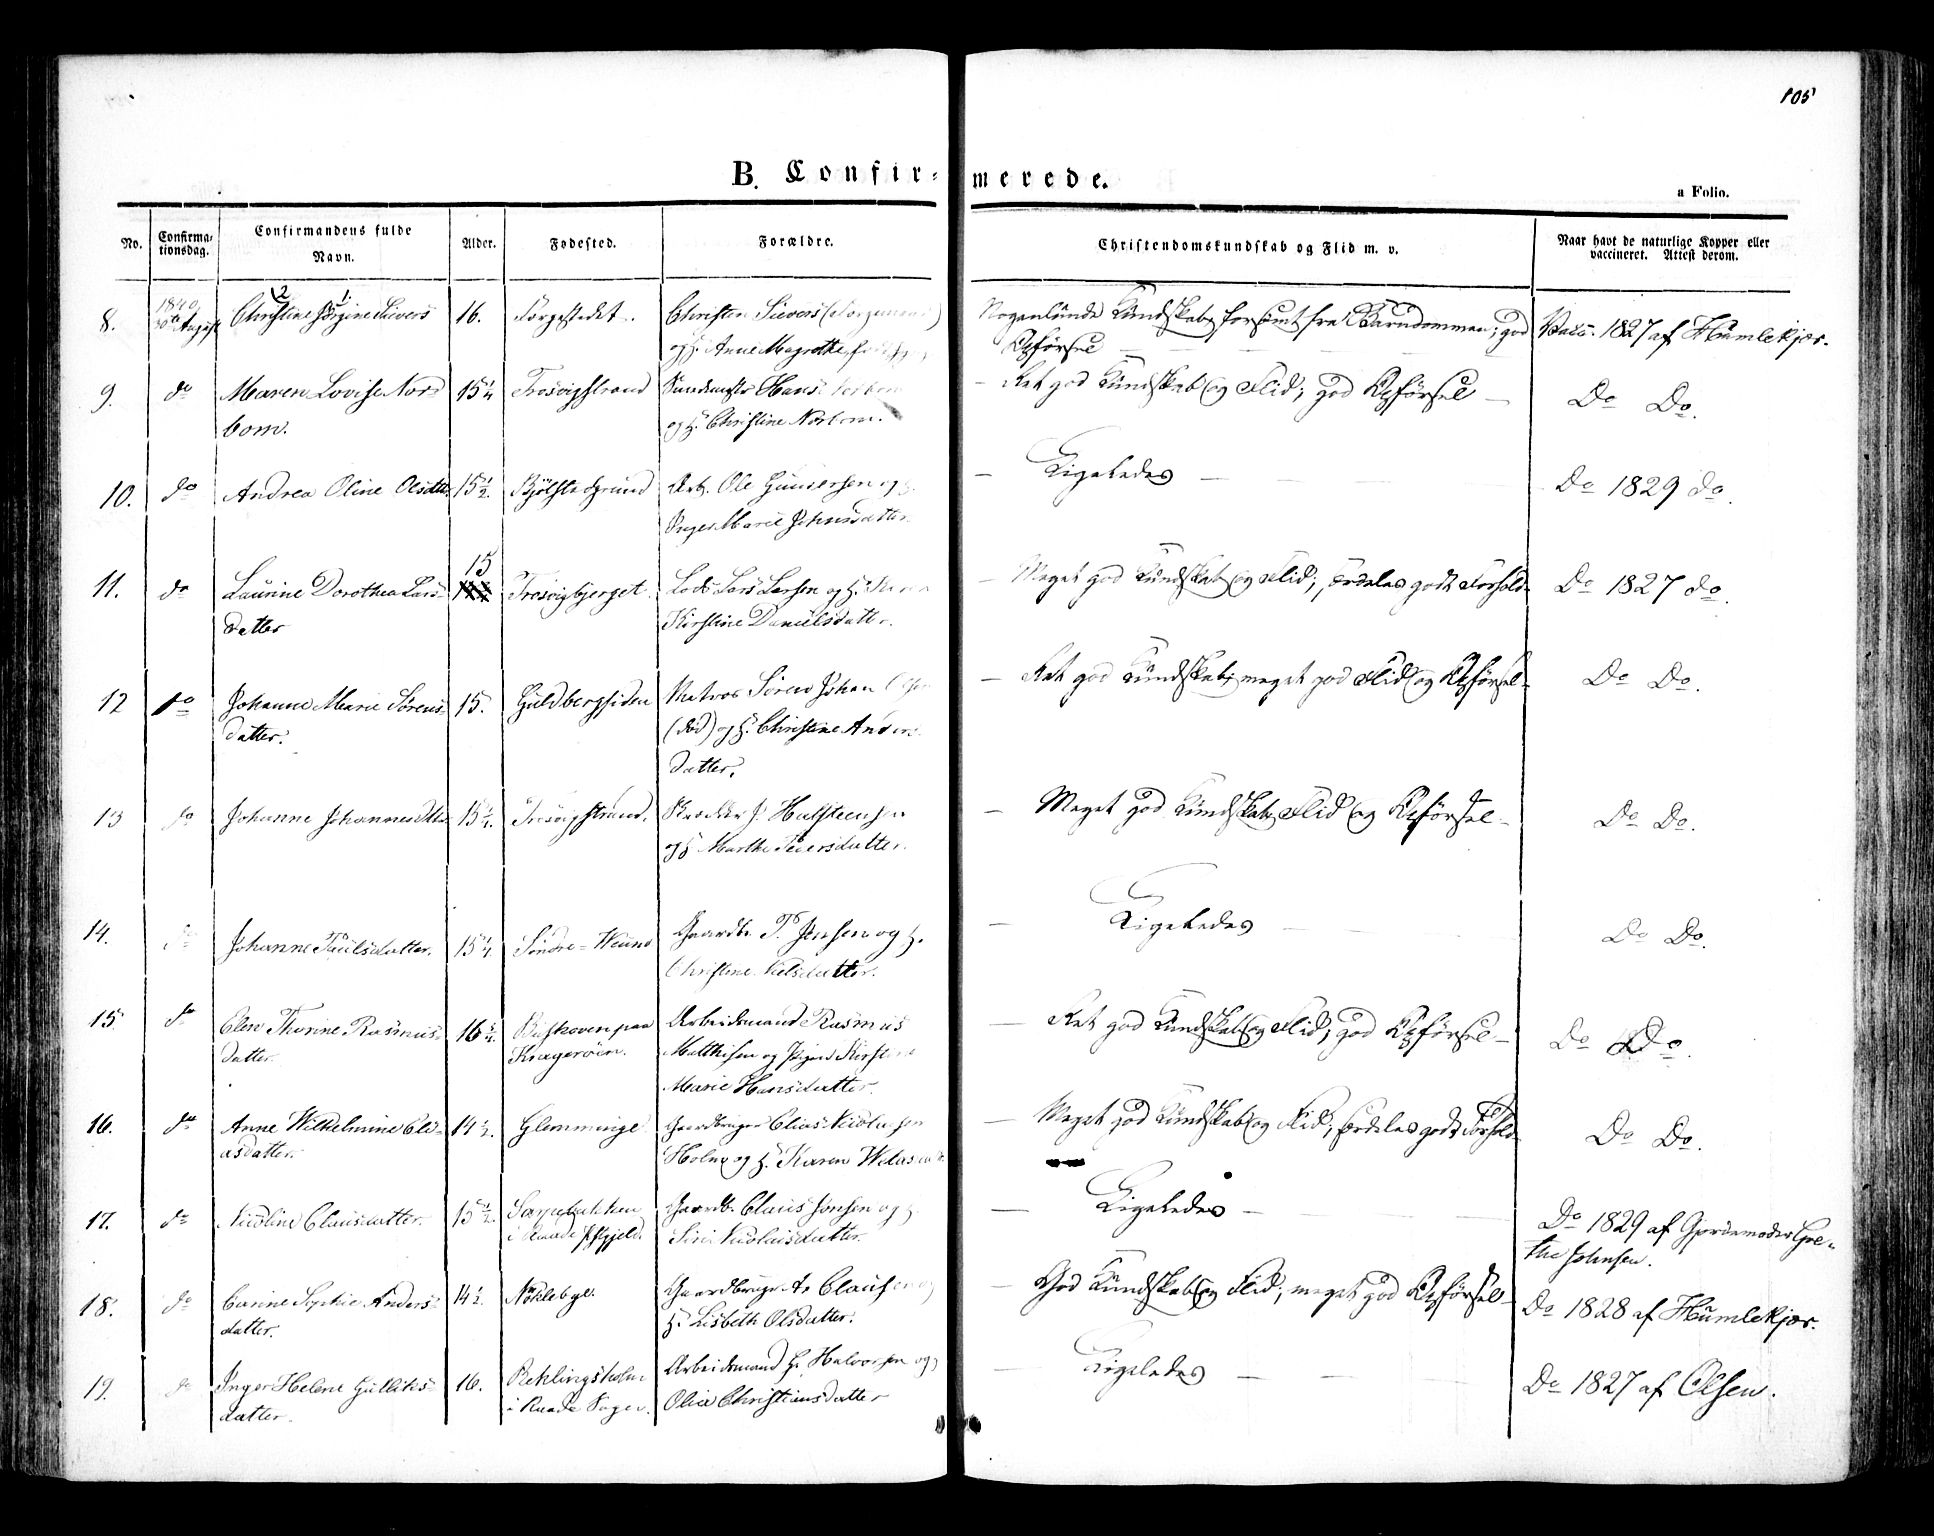 105
B. Confirmerede.
a Folio.
No. Confirmationsdag. Confirmandens fulde Navn. Alder. Fødested. Forældre. Christendomskundskab og Flid m. v. Naar havt de naturlige Kopper eller vaccineret. Attest derom.
8. 1840 30te August Christine Jørgine Sievers 16. Torgestedet. Christen Sievers og H. Anne Magrethe Nogenlunde Kundskab, forsømt fra Barndommen; god Opførsel Vacc. 1827 af Humlekjær.
9. do Maren Lovise Norbom. 15 1/4 Trosvigstrand Hans Norbom og H. Christine Norbom. Ret god Kundskab og Flid; god Opførsel Do Do.
10. do Andrea Oline Olsdtter 15 1/2. Arb. Ole Gundersen og H. Inger Marie Johnsdatter. Ligeledes Do 1829 do.
11. do Laurine Dorothea Larsdatter 15 Trosvigbjerget. Lods Lars Larsen og H. Kirstine Danielsdatter. Meget god Kundskab og Flid; særdeles godt Forhold Do 1827 do.
12 do Johanne Marie Sørensdatter. 15. Guldbergsiden Matros Søren Johan Olsen (død) og H. Christine Andersdatter. Ret god Kundskab, meget god Flid og Opførsel Do Do.
13 do Johanne Johannesdtter 15 1/4. Trosvigstrand. J. Halfsteensen og H. Marthe Peiersdatter. Meget god Kundskab, Flid og Opførsel Do Do.
14. do Johanne Paulsdatter. 15 1/4. Søndre Gaardbr. P. Jensen og H. Christine Nielsdatter. Ligeledes Do Do.
15 do Elen Thorine Rasmusdatter. 16 1/2 paa Kragerøen. Arbeidsmand Rasmus Matthisen og Pigen Kirstine Marie Hansdatter. Ret god Kundskab og Flid; god Opførsel Do Do.
16. do Anne Wilhelmine Eliasdatter. 14 1/2. Glemminge Gaardbruger Elias Nicolaisen Holm og H. Karen Meget god Kundskab og Flid, særdeles godt Forhold Do Do.
17. do Nicoline Clausdatter. 15 1/2. i Raade Gaardb. Claus Jensen og H. Siri Nicolaisdatter. Ligeledes Do 1829 af Gjordemoder Grethe Johnsen.
18. do Carine Sophie Andersdatter. 14 1/2. Nøkleby. Gaardbruger A. Clausen og H. Lisbeth Olsdatter. God Kundskab og Flid; meget god Opførsel Do 1828 af Humlekjær.
19. do Inger Helene Gulliksdatter. 16. Rehlingsholm i Raade Sogn. Arbeidsmand G. Halvorsen og Olia Christiansdatter Ligeledes Do 1827 af Olsen.